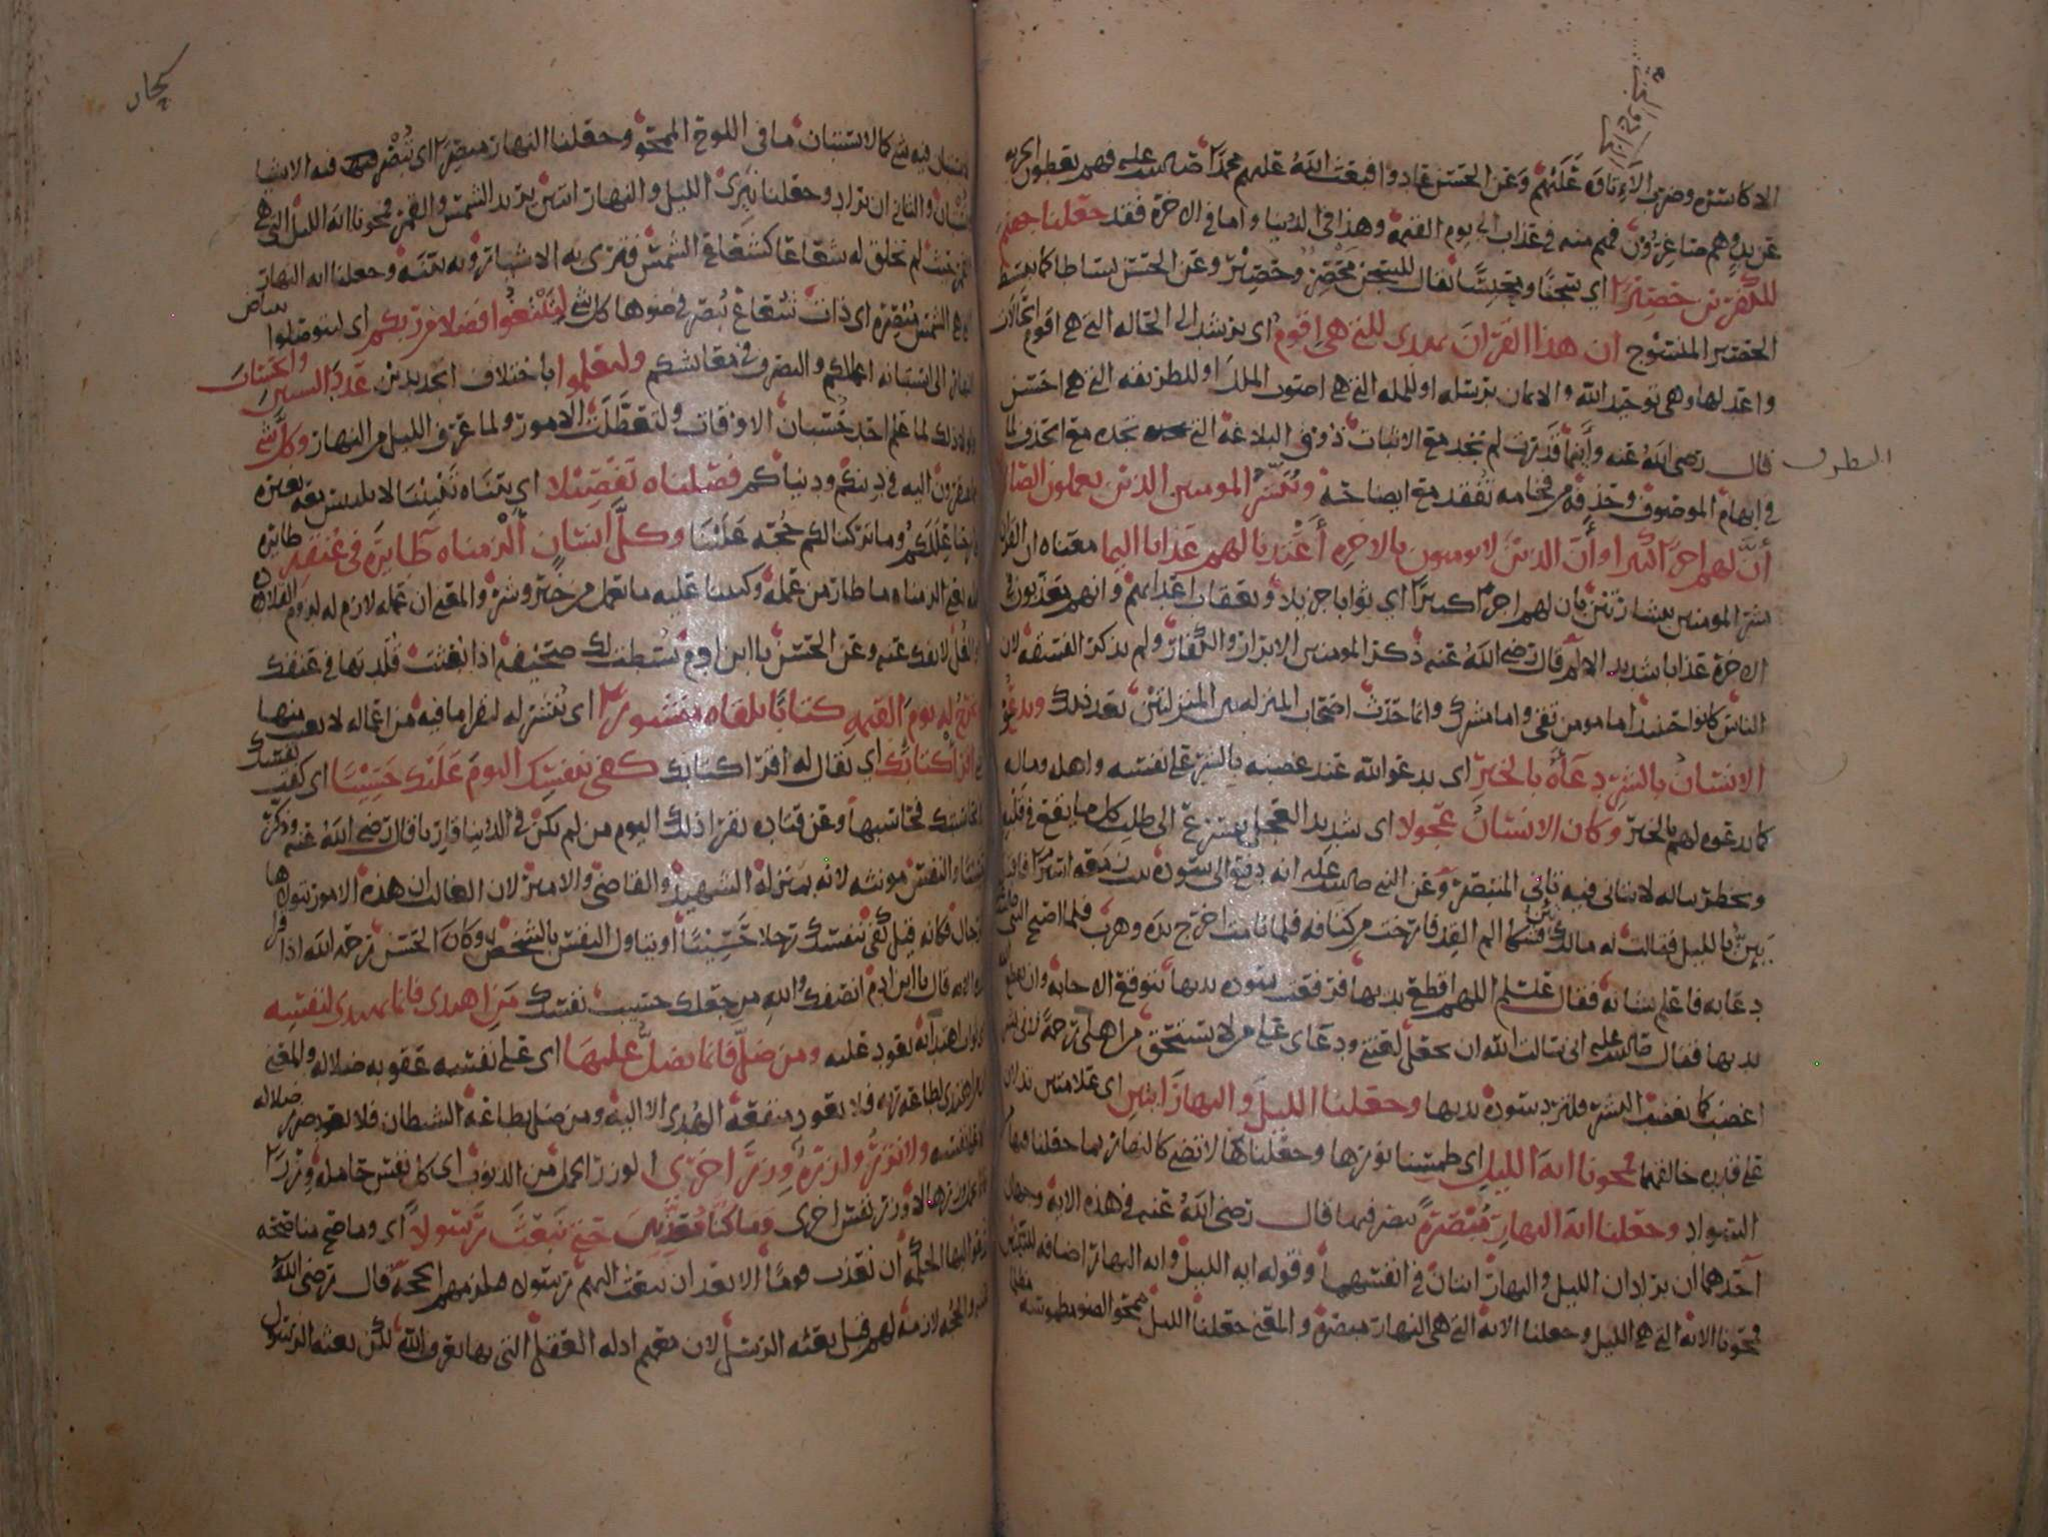 الاكاسرة وضرب الاتاوة عليهم وعن الحسن عادوا فبعث الله عليهم محمدا صلى الله عليه فهم يعطون الجزية
عن يد وهم صاغرون فهم منه في عذاب الى يوم القيمة وهذا في الدنيا واما في الاخرة فقد جعلنا جهنم
للكفرين حصيرا اي سجنا ومحبسا يقال للسجن محصر وحصير وعن الحسن بساطا كما يبسط
الحصير المنسوج ان هذا القران يهدي للتي هي اقوم اي يرشد الى الحالة التي هي اقوم الحالات
واعدلها وهي توحيد الله والايمان برسله او للملة التي هي اصوب الملك او للطريقة التي هي احسن
قال رضي الله عنه وايما قدرت لم تجد مع الاثبات ذوق البلاغة التي تجده مع الحذف لما
في ابهام الموصوف وحذفه من فخامة تفقد مع ايضاحه ويبشر المومنين الذين يعملون الصال
ان لهم اجرا كبيرا وان الذين لا يومنون بالاخرة اعتدنا لهم عذابا اليما معناه ان القران
بشر المومنين ببشارتين بان لهم اجرا كبيرا اي ثوابا جزيلا وبعقاب اعدائهم وانهم يعذبون في
الاخرة عذابا شديد الالم قال رضي الله عنه ذكر المومنين الابرار والكفار ولم يذكر الفسقة لان
الناس كانوا حينئذ اما مومن تقي واما مشرك وانما حدث اصحاب المنزلة بين المنزلتين بعد ذلك ويدع
الانسان بالشر دعاه بالخير اي يدعو الله عند غضبه بالشر على نفسه واهله وماله
كما يدعوه لهم بالخير وكان الانسان عجولا اي شديد العجل يتسرع الى طلب كل ما يقع في قلبه
ويخطر بباله لا يتانى فيه تاني المتبصر وعن النبي صلى الله عليه انه دفع الى سودة بنت زمعة اسيرا فاقبل
يئن بالليل فقالت له مالك فشكا الم القد فارخت من كتافه فلما نامت اخرج يده وهرب فلما اصبح النبي
دعا به فاعلم بشانه فقال عليه السلم اللهم اقطع يديها فرفعت سودة يديها تتوقع الاجابة وان يقطع الله
يديها فقال صلى الله عليه اني سالت الله ان يجعل لعنتي ودعاي على من لا يستحق من اهلي رحمة لاني بشر
اغضب كما يغضب البشر فلترد سودة يديها وجعلنا الليل والنهار ايتين اي علامتين تدلان
على قدرة خالقهما فمحونا اية الليل اي طمسنا نورها وجعلناها لا تضي كالنهار بما جعلنا فيها من
السواد وجعلنا اية النهار مبصرة يبصر فيها قال رضي الله عنه في هذه الاية وجهان
احدهما ان يراد ان الليل والنهار ايتان في انفسهما وقوله اية الليل واية النهار اضافة للتبيين
فمحونا الاية التي هي الليل وجعلنا الاية التي هي النهار مبصرة والمعنى جعلنا الليل ممحو الضو مطموسه مظلما
لا يستبان فيه شي كما لا تستبان ما في اللوح الممحو وجعلنا النهار مبصرا اي تبصر فيه الاشيا
وتستبان والثاني ان يراد وجعلنا نيري الليل والنهار ايتين يريد الشمس والقمر فمحونا اية الليل التي هي
القمر حيث لم نخلق له شعاعا كشعاع الشمس فترى به الاشيا روية بينة وجعلنا اية النهار
التي هي الشمس مبصرة اي ذات شعاع تبصر في ضوها كل شي لتبتغوا فضلا من ربكم اي لتوصلوا
ببياض النهار الى استبانة اعمالكم والتصرف في معايشكم ولتعلموا باختلاف الجديدين عدد السنين والحساب
ولولا ذلك لما علم احد حسبان الاوقات ولتعطلت الامور ولما عرف الليل من النهار وكل شي
مما تفتقرون اليه في دينكم ودنياكم فصلناه تفصيلا اي بيناه تبيينا لا يلتبس معه بغيره
فازحنا عللكم وما تركنا لكم حجة علينا وكل انسان الزمناه طايره في عنقه طايره
عمله يعني الزمناه ما طار من عمله وكتبنا عليه ما يعمل من خير وشر والمعنى ان عمله لازم له لزوم القلادة
او الغل لا يفك عنه وعن الحسن يا ابن ادم بسطت لك صحيفة اذا بعثت قلدتها في عنقك
ونخرج له يوم القيمة كتابا يلقاه منشورا اي ينشر له ليقرا ما فيه من اعماله
اقرا كتابك اي يقال له اقرا كتابك كفى بنفسك اليوم عليك حسيبا اي كفت نفسك
لمحاسبتك محاسبها وعن قتادة يقرا ذلك اليوم من لم يكن في الدنيا قاريا قال رضي الله عنه وذكر
حسيبا والنفس مونثة لانه بمنزلة الشهيد والقاضي والامير لان الغالب ان هذه الامور يتولاها
الرجال فكانه قيل كفى بنفسك رجلا حسيبا او يتاول النفس بالشخص وكان الحسن رحمه الله اذا قرا
هذه الاية قال يا ابن ادم انصفك والله من جعلك حسيب نفسك من اهتدى فانما يهتدي لنفسه
اي ثواب اهتدايه يعود عليه ومن ضل فانما يضل عليها اي على نفسه عقوبة ضلاله والمعنى
من اهتدى لطاعة ربه فلا يعود منفعة الهدى الا اليه ومن ضل بطاعة الشيطان فلا يعود ضرر ضلاله
الا على نفسه ولا تزر وازرة وزر اخرى الوزر الحمل من الذنوب اي كل نفس حاملة وزرا
فانما تحمل وزرها لا وزر نفس اخرى وما كنا معذبين حتى نبعث رسولا اي وما صح منا صحة
تدعو اليها الحكمة ان نعذب قوما الا بعد ان نبعث اليهم رسولا فنلزمهم الحجة قال رضي الله
والحجة لازمة لهم قبل بعثة الرسل لان معهم ادلة العقل التي بها يعرف الله لكن بعثة الرسول